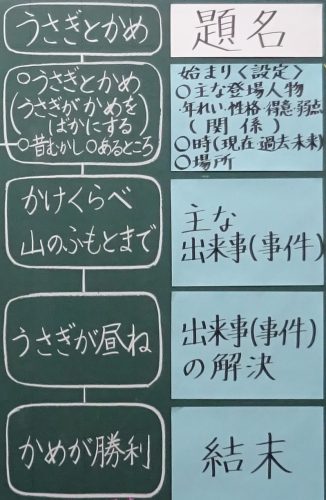 うさぎとかめ
題名
○うさぎとかめ
(うさぎがかめを
ばかにする)
○昔むかし○あるところ
始まり〈設定〉
○主な登場人物
・年れい・性格・得意・弱点
(関係)
○時(現在・過去・未来)
○場所
かけくらべ
山のふもとまで
主な
出来事(事件)
うさぎが昼ね
出来事(事件)
の解決
かめが勝利
結末